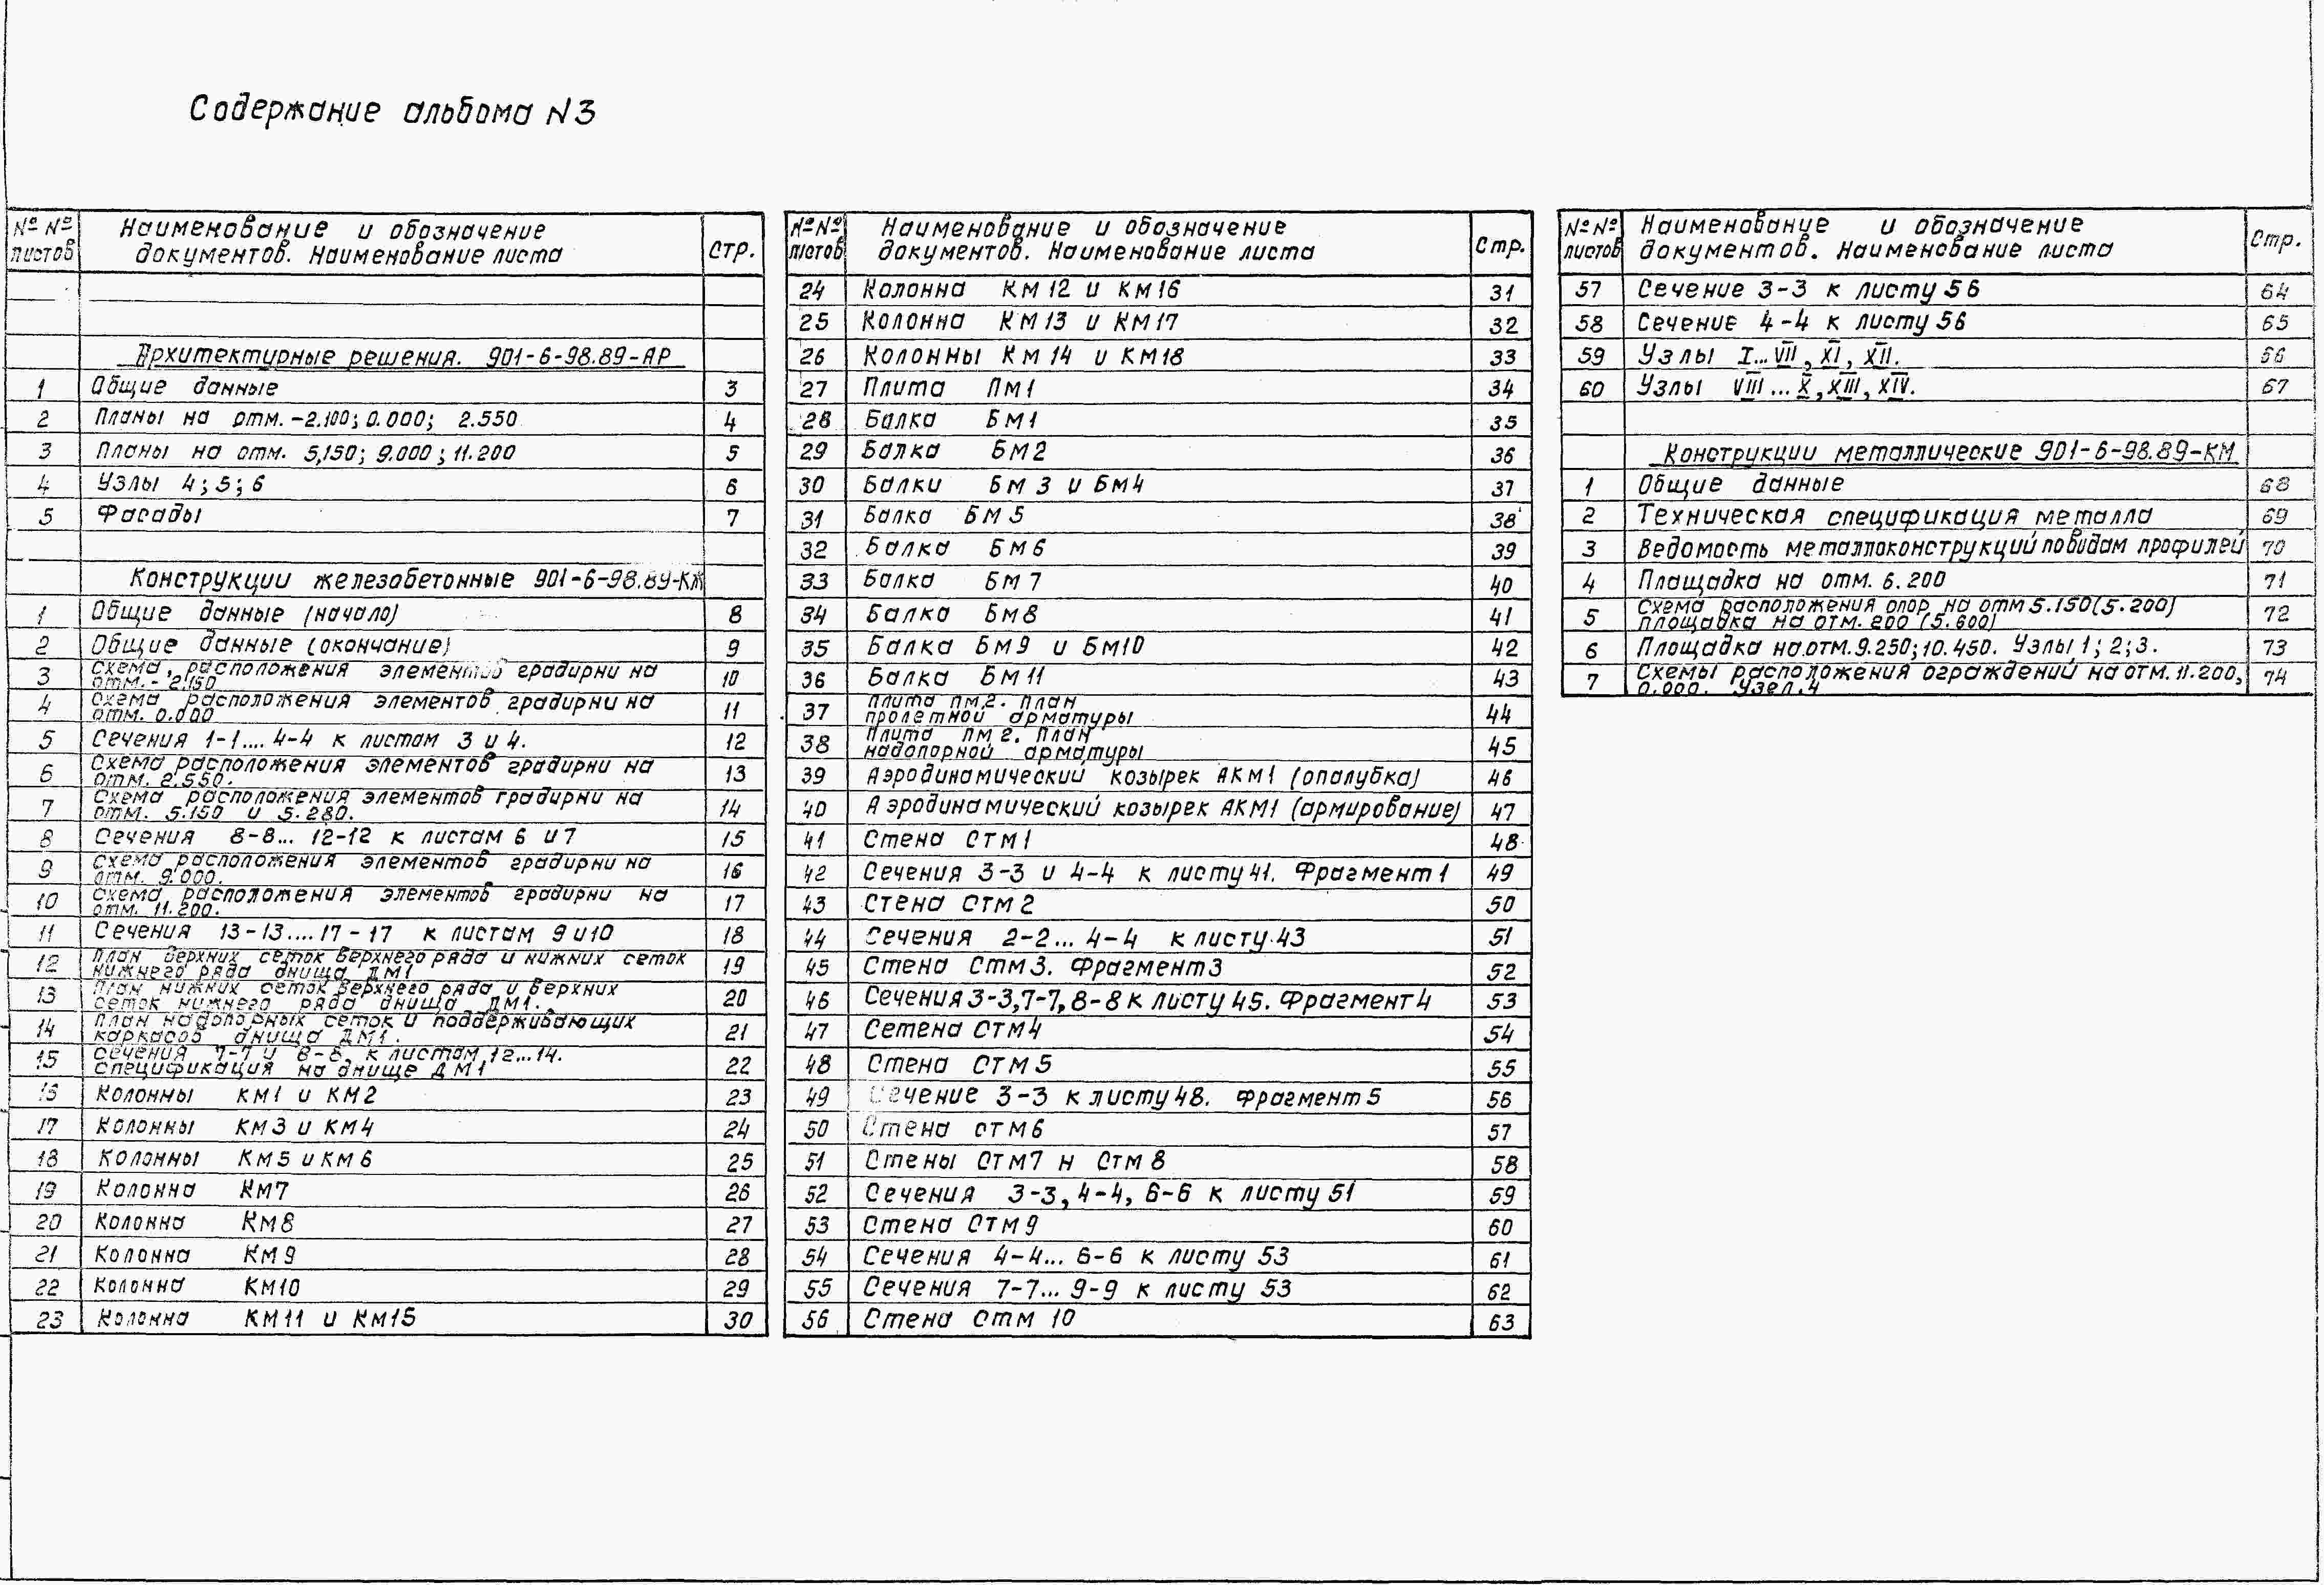 Содержание альбома N3
№ № листов | Наименование и обозначение документов. Наименование листа | Стр.
Архитектурные решения. 901-6-98.89-АР
1 Общие данные 3
2 Планы на отм. -2.100; 0.000; 2.550 4
3 Планы на отм. 5,150; 9.000; 11.200 5
4 Узлы 4; 5; 6 6
5 Фасады 7
Конструкции железобетонные 901-6-98.89-КЖ
1 Общие данные (начало) 8
2 Общие данные (окончание) 9
3 Схема расположения элементов градирни на
отм. - 2.150 10
4 Схема расположения элементов градирни на
отм. 0.000 11
5 Сечения 1-1.... 4-4 к листам 3 и 4. 12
6 Схема расположения элементов градирни на
отм. 2.550. 13
7 Схема расположения элементов градирни на
отм. 5.150 и 5.280. 14
8 Сечения 8-8... 12-12 к листам 6 и 7 15
9 Схема расположения элементов градирни на
отм. 9.000. 16
10 Схема расположения элементов градирни на
отм. 11.200. 17
11 Сечения 13-13....17-17 к листам 9 и 10 18
12 План верхних сеток верхнего ряда и нижних сеток
нижнего ряда днища ДМ1 19
13 План нижних сеток верхнего ряда и верхних
сеток нижнего ряда днища ДМ1. 20
14 План надопорных сеток и поддерживающих
каркасов днища ДМ1. 21
15 Сечения 7-7 и 8-8, к листам 12...14.
Спецификация на днище ДМ1 22
16 Колонны КМ1 и КМ2 23
17 Колонны КМ3 и КМ4 24
18 Колонны КМ5 и КМ6 25
19 Колонна КМ7 26
20 Колонна КМ8 27
21 Колонна КМ9 28
22 Колонна КМ10 29
23 Колонна КМ11 и КМ15 30
№ № листов | Наименование и обозначение документов. Наименование листа | Стр.
24 Колонна КМ12 и КМ16 31
25 Колонна КМ13 и КМ17 32
26 Колонны КМ14 и КМ18 33
27 Плита ПМ1 34
28 Балка БМ1 35
29 Балка БМ2 36
30 Балки БМ3 и БМ4 37
31 Балка БМ5 38
32 Балка БМ6 39
33 Балка БМ7 40
34 Балка БМ8 41
35 Балка БМ9 и БМ10 42
36 Балка БМ11 43
37 Плита ПМ2. План
пролетной арматуры 44
38 Плита ПМ2. План
надопорной арматуры 45
39 Аэродинамический козырек АКМ1 (опалубка) 46
40 Аэродинамический козырек АКМ1 (армирование) 47
41 Стена СТМ1 48
42 Сечения 3-3 и 4-4 к листу 41. Фрагмент 1 49
43 Стена СТМ2 50
44 Сечения 2-2... 4-4 к листу 43 51
45 Стена СТМ3. Фрагмент 3 52
46 Сечения 3-3, 7-7, 8-8 к листу 45. Фрагмент 4 53
47 Сетена СТМ4 54
48 Стена СТМ5 55
49 Сечение 3-3 к листу 48. Фрагмент 5 56
50 Стена СТМ6 57
51 Стены СТМ7 н СТМ8 58
52 Сечения 3-3, 4-4, 6-6 к листу 51 59
53 Стена СТМ9 60
54 Сечения 4-4... 6-6 к листу 53 61
55 Сечения 7-7... 9-9 к листу 53 62
56 Стена СТМ 10 63
№ № листов | Наименование и обозначение документов. Наименование листа | Стр.
57 Сечение 3-3 к листу 56 64
58 Сечение 4-4 к листу 56 65
59 Узлы I...VII, XI, XII. 66
60 Узлы VIII...X, XIII, XIV. 67
Конструкции металлические 901-6-98.89-КМ
1 Общие данные 68
2 Техническая спецификация металла 69
3 Ведомость металлоконструкций по видам профилей 70
4 Площадка на отм. 6.200 71
5 Схема расположения опор на отм 5.150(5.200)
площадка на отм. 200 (5.600) 72
6 Площадка на отм. 9.250; 10.450. Узлы 1; 2; 3. 73
7 Схемы расположения ограждений на отм. 11.200,
0.000. Узел 4 74